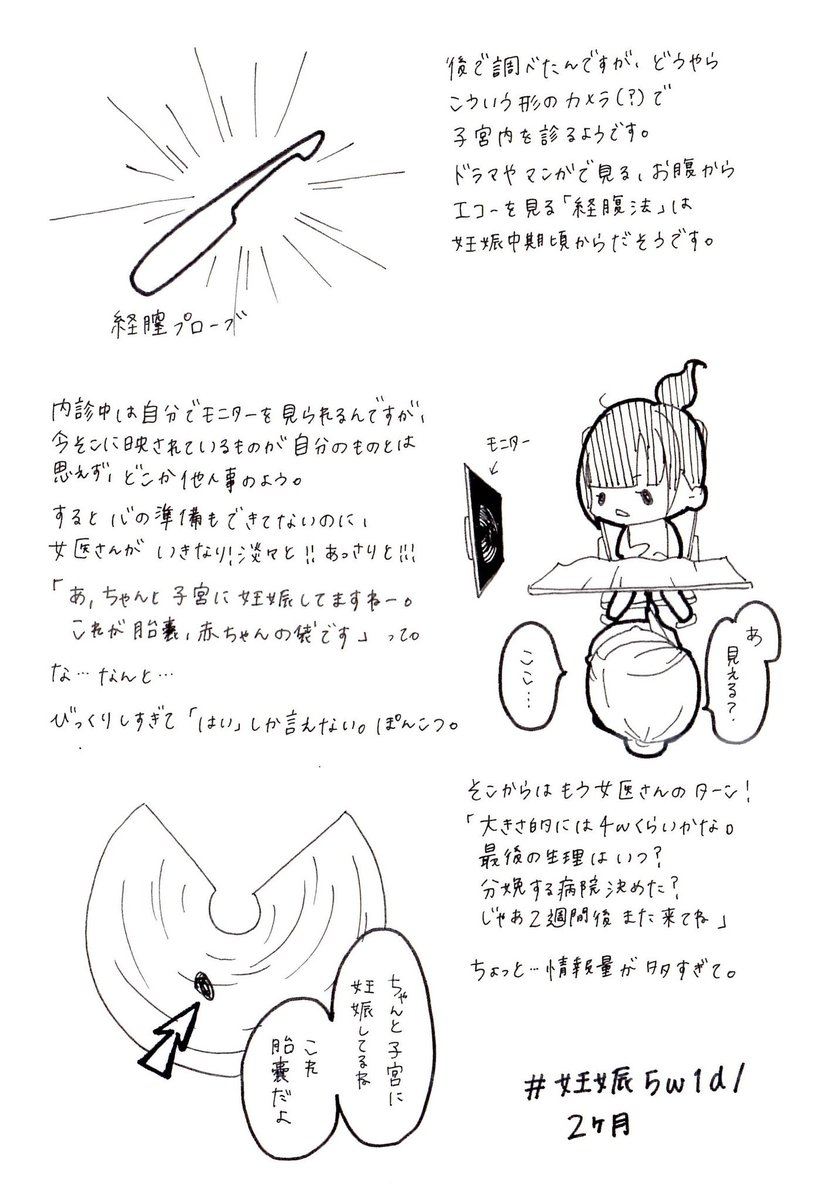 後で調べたんですが、どうやら
こういう形のカメラ(?)で
子宮内を診るようです。
ドラマやマンガで見る、お腹から
エコーを見る「経腹法」は
妊娠中期頃からだそうです。
経膣プローブ
内診中は自分でモニターを見られるんですが、
今そこに映されているものが自分のものとは
思えず、どこか他人事のよう。
すると心の準備もできてないのに、
女医さんがいきなり!淡々と!!あっさりと!!!
「あ、ちゃんと子宮に妊娠してますねー。
これが胎嚢、赤ちゃんの袋です」って。
な…なんと…
びっくりしすぎて「はい」しか言えない。ぽんこつ。
モニター
あ
見える?
ここ…
そこからはもう女医さんのターン!
「大きさ的には4wくらいかな。
最後の生理はいつ?
分娩する病院決めた?
じゃあ2週間後また来てね」
ちょっと…情報量が多すぎて。
ちゃんと子宮に
妊娠してるね
これ
胎嚢だよ
#妊娠5w1d/
2ヶ月